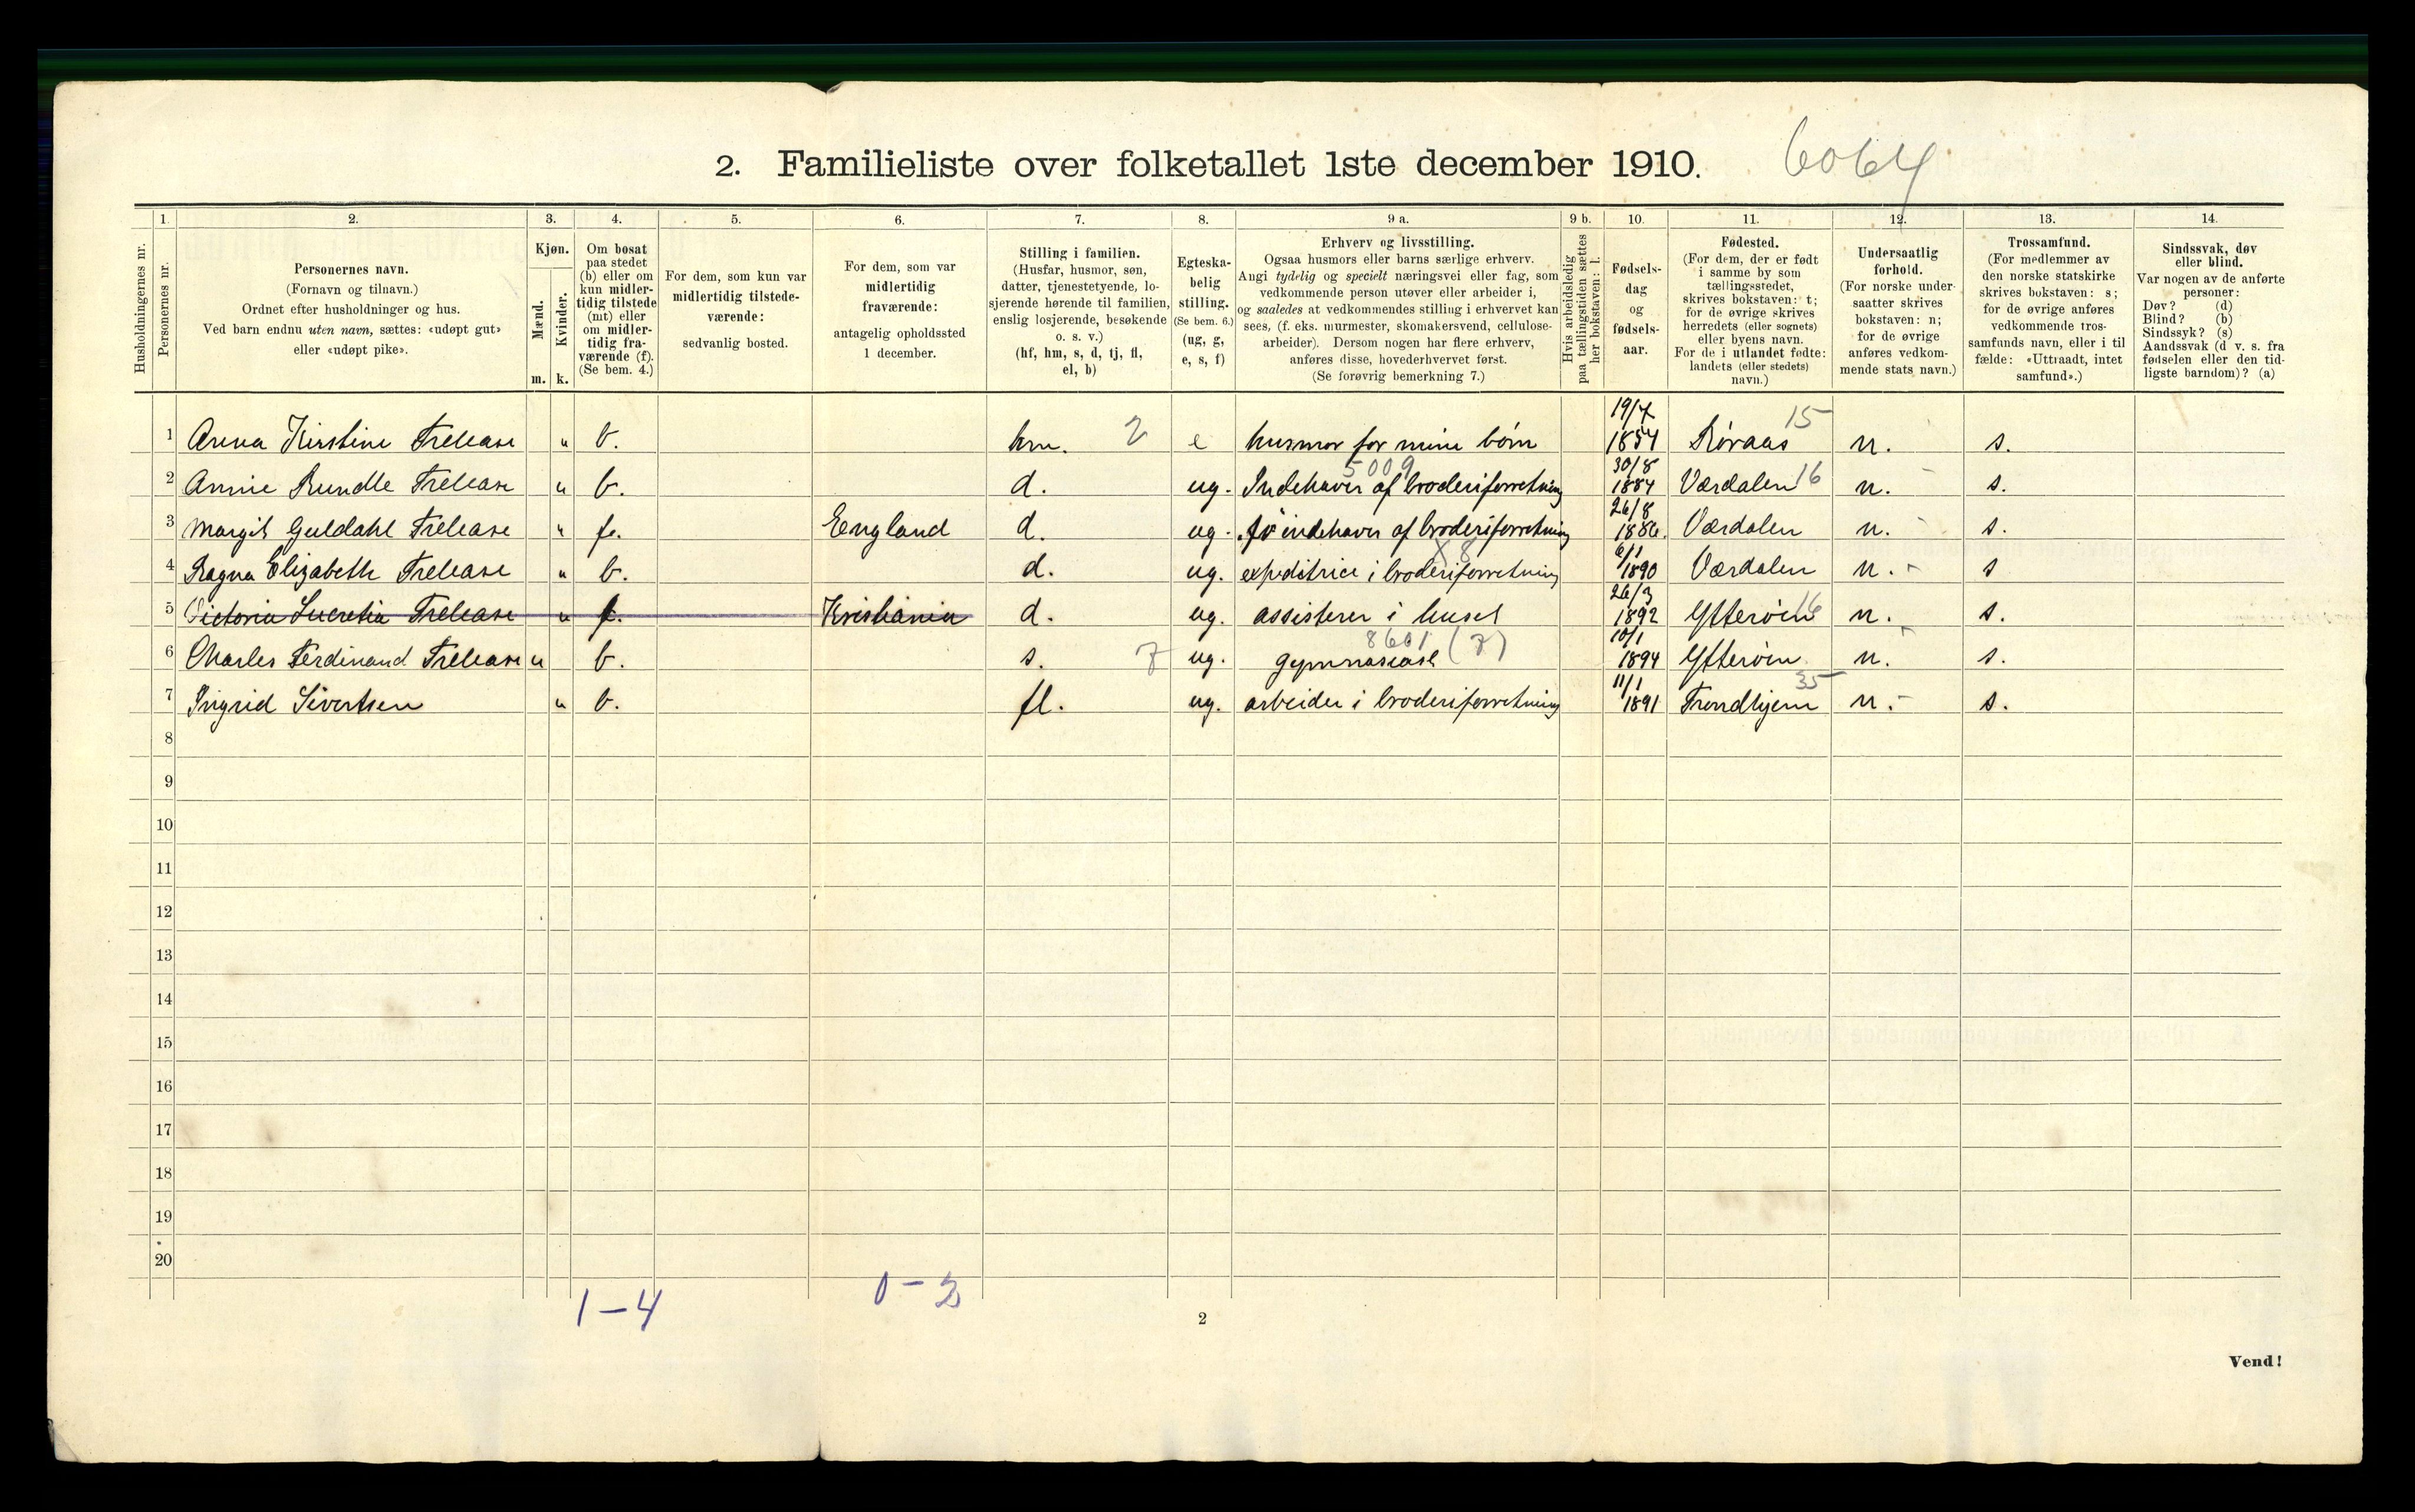 2. Familieliste over folketallet 1ste december 1910. 6064
Husholdningernes nr.
1.
Personernes nr.
2.
Personernes navn.
(Fornavn og tilnavn.)
Ordnet efter husholdninger og hus.
Ved barn endnu uten navn, sættes: «udøpt gut»
eller «udøpt pike».
3.
Kjøn.
Mænd.
m.
Kvinder.
k.
4.
Om bosat
paa stedet
(b) eller om
kun midler-
tidig tilstede
(mt) eller
om midler-
tidig fra-
værende (f).
(Se bem. 4.)
5.
For dem, som kun var
midlertidig tilstede-
værende:
sedvanlig bosted.
6.
For dem, som var
midlertidig
fraværende:
antagelig opholdssted
1 december.
7.
Stilling i familien.
(Husfar, husmor, søn,
datter, tjenestetyende, lo-
sjerende hørende til familien,
enslig losjerende, besøkende
o. s. v.)
(hf, hm, s, d, tj, fl,
el, b)
8.
Egteska-
belig
stilling.
(Se bem. 6.)
(ug, g,
e, s, f)
9 a.
Erhverv og livsstilling.
Ogsaa husmors eller barns særlige erhverv.
Angi tydelig og specielt næringsvei eller fag, som
vedkommende person utøver eller arbeider i,
og saaledes at vedkommendes stilling i erhvervet kan
sees, (f. eks. murmester, skomakersvend, cellulose-
arbeider). Dersom nogen har flere erhverv,
anføres disse, hovederhvervet først.
(Se forøvrig bemerkning 7.)
9 b.
Hvis arbeidsledig
paa tællingstiden sættes
her bokstaven: l.
10.
Fødsels-
dag
og
fødsels-
aar.
11.
Fødested.
(For dem, der er født
i samme by som
tællingsstedet,
skrives bokstaven: t;
for de øvrige skrives
herredets (eller sognets)
eller byens navn.
For de i utlandet fødte:
landets (eller stedets)
navn.)
12.
Undersaatlig
forhold.
(For norske under-
saatter skrives
bokstaven: n;
for de øvrige
anføres vedkom-
mende stats navn.)
13.
Trossamfund.
(For medlemmer av
den norske statskirke
skrives bokstaven: s;
for de øvrige anføres
vedkommende tros-
samfunds navn, eller i til
fælde: «Uttraadt, intet
samfund».)
14.
Sindssvak, døv
eller blind.
Var nogen av de anførte
personer:
Døv? (d)
Blind? (b)
Sindssyk? (s)
Aandssvak (d v. s. fra
fødselen eller den tid-
ligste barndom)? (a)
1 Anna Kirstine Trelease " b. hm. 2 e husmor for mine börn 19/7 1854 Röraas 15 n. s.
2 Annie Rundle Trelease " b. d. ug. Indehaver af broderiforretning 5009 30/8 1884 Værdalen 16 n. s.
3 Margit Guldahl Trelease " f. England d. ug. indehaver af broderiforretning 26/8 1886. Værdalen n. s.
4 Ragna Elizabeth Trelease " b. d. ug. expeditrice i broderiforretning X8 6/1 1890 Værdalen n. s
5 Victoria Lucretia Trelease " f. Kristiania d. ug. assisterer i huset 26/3 1892 Ytteröen 16 n. s.
6 Charles Ferdinand Trelease " b. s. 7 ug. gymnasiast 8601 (7) 10/1 1894 Ytteröen n. s.
7 Ingrid Sivertsen " b. fl. ug. arbeider i broderiforretning 11/1 1891 Trondhjem 35 n. s.
8
9
10
11
12
13
14
15
16
17
18
19
20
1-4 0-2
2
Vend!